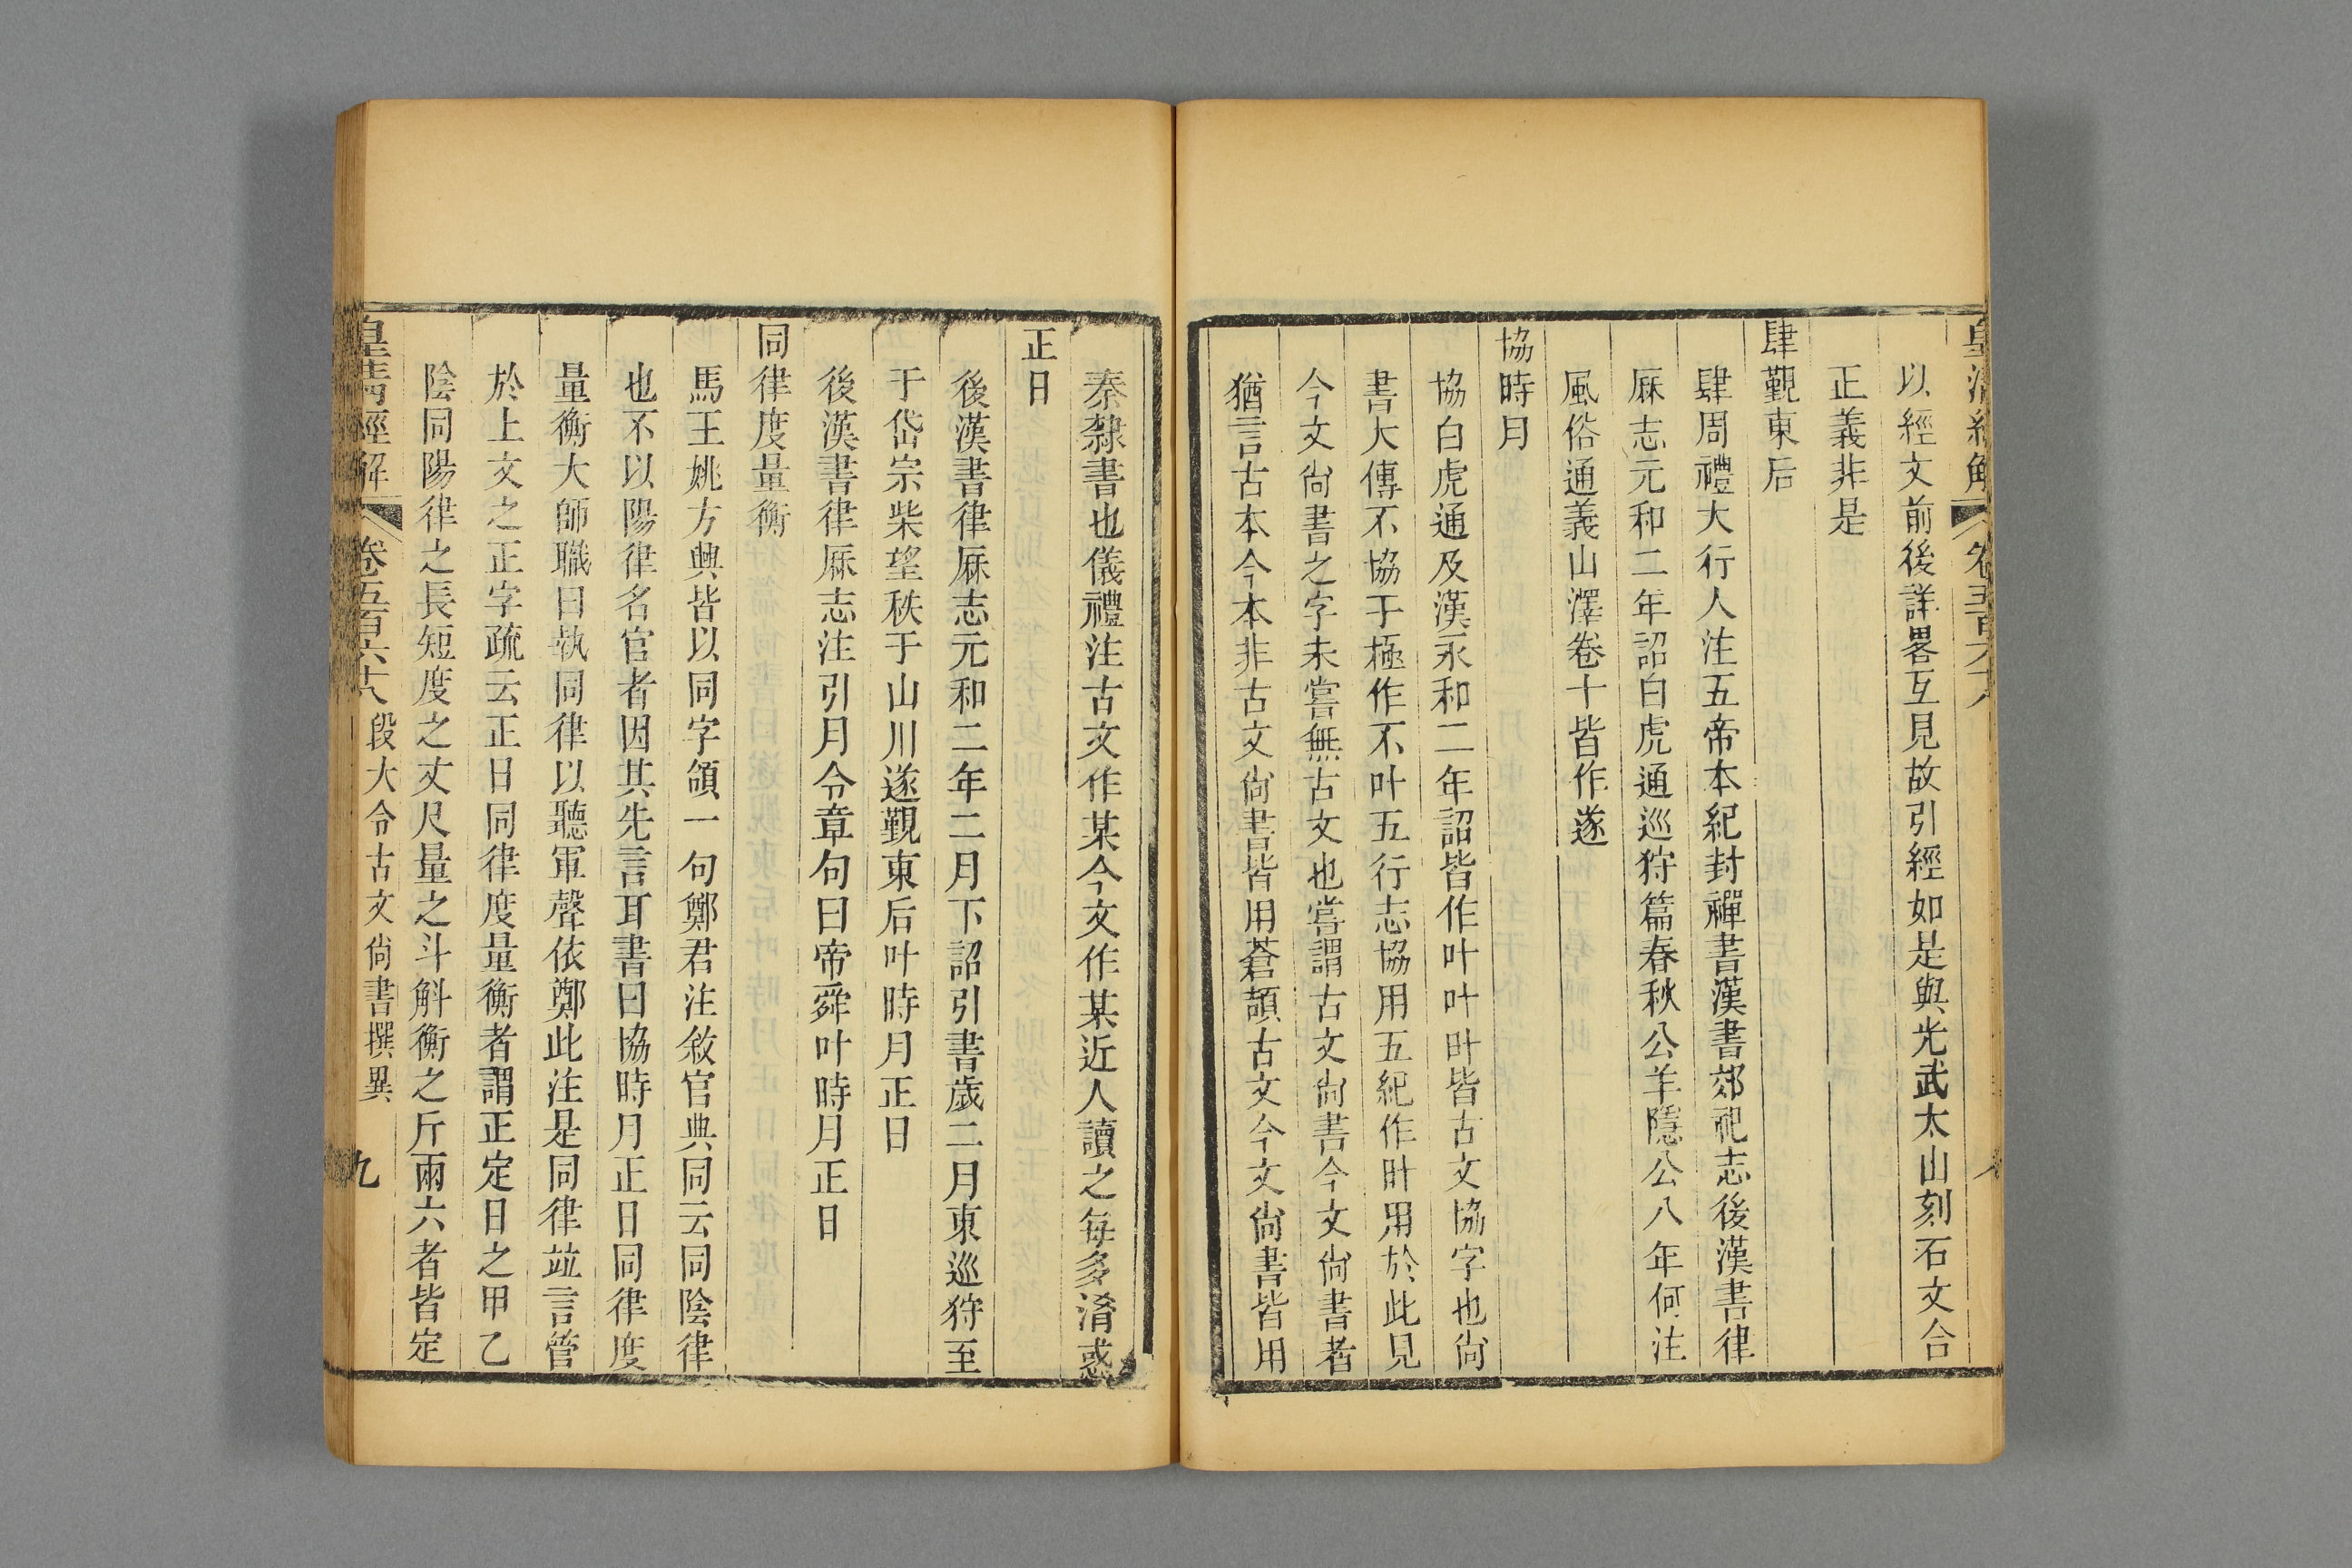 皇清經解
卷五百六十八
以經文前後詳畧互見故引經如是與光武太山刻石文合
正義非是
肆覲東后
肆周禮大行人注五帝本紀封禪書漢書郊祀志後漢書律
厤志元和二年詔白虎通巡狩篇春秋公羊隱公八年何注
風俗通義山澤卷十皆作遂
協時月
協白虎通及漢永和二年詔皆作叶叶旪皆古文協字也尙
書大傳不協于極作不叶五行志協用五紀作旪用於此見
今文尙書之字未嘗無古文也嘗謂古文尙書今文尙書者
猶言古本今本非古文尙書皆用蒼頡古文今文尙書皆用
秦隸書也儀禮注古文作某今文作某近人讀之每多淆惑
正日
後漢書律厤志元和二年二月下詔引書歲二月東巡狩至
于岱宗柴望秩于山川遂覲東后叶時月正日
後漢書律厤志注引月令章句曰帝舜叶時月正日
同律度量衡
馬王姚方興皆以同字領一句鄭君注敘官典同云同陰律
也不以陽律名官者因其先言耳書曰協時月正日同律度
量衡大師職曰執同律以聽軍聲依鄭此注是同律竝言管
於上文之正字疏云正日同律度量衡者謂正定日之甲乙
陰同陽律之長短度之丈尺量之斗斛衡之斤兩六者皆定
皇淸經解
卷五百六十八
段大令古文尙書撰異
九